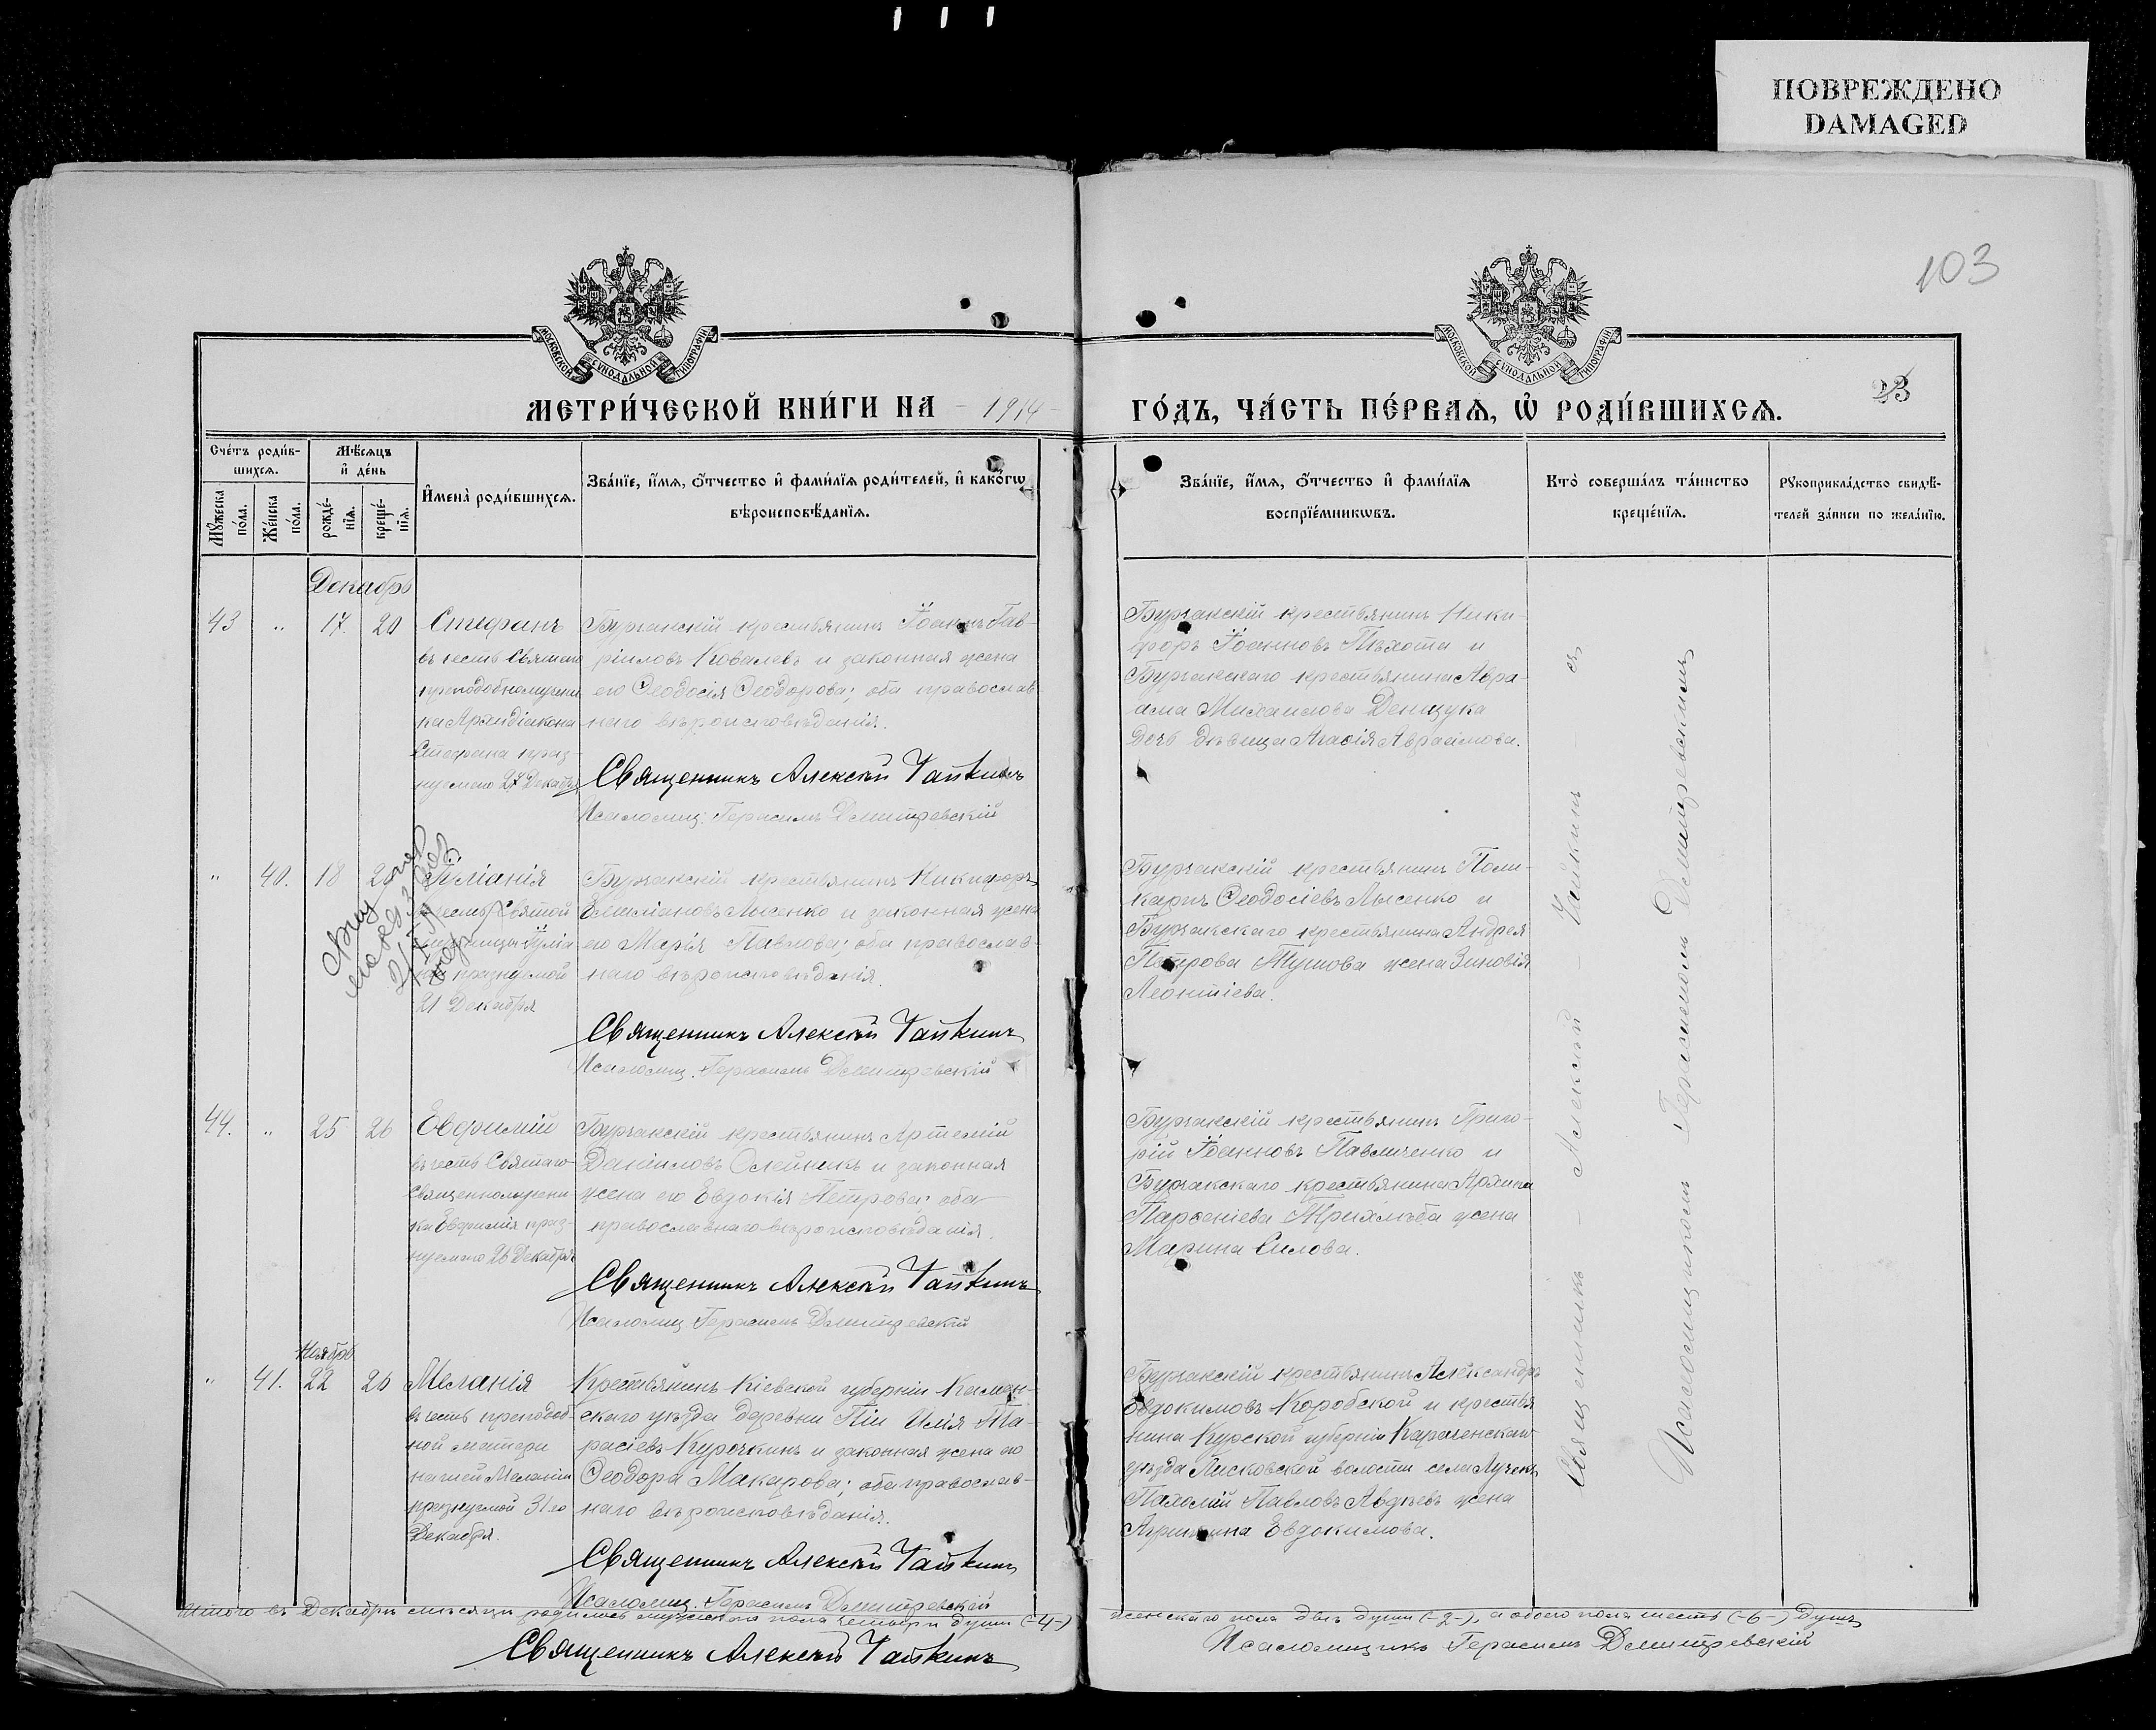 ПОВРЕЖДЕНО
DAMAGED
103
МОСКОВСКОЙ СѴНОДАЛЬНОЙ ТИПОГРАФІИ
МОСКОВСКОЙ СѴНОДАЛЬНОЙ ТИПОГРАФІИ
МЕТРИ́ЧЕСКОЙ КНИ́ГИ НА - 1914 -
ГО́ДЪ, ЧА́СТЬ ПЕ́РВАѦ, Ѡ҆ РОДИ́ВШИХСѦ.
23
Сче́тъ роди́в-
шихсѧ.
Мꙋ́жеска
по́ла.
Же́нска
по́ла.
Мѣ́сѧцъ
и҆ де́нь
рожде́-
нїѧ.
креще́-
нїѧ.
И҆мена̀ роди́вшихсѧ.
Зва́нїе, и҆́мѧ, ѻ҆́тчество и҆ фами́лїѧ роди́телей, и҆ како́гѡ
вѣроисповѣ́данїѧ.
Зва́нїе, и҆́мѧ, ѻ҆́тчество и҆ фами́лїѧ
воспрїе́мникѡвъ.
Кто̀ соверша́лъ та́инство
креще́нїѧ.
Рꙋкоприкла́дство свидѣ́-
телей за́писи по жела́нїю.
Декабрь
43 " 17. 20
Стефанъ
въ честь Святаго
преподобномучени
ка Архидіакона
Стефана праз-
нуемаго 27 Декабря
Бурчакскій крестьянинъ Іоаннъ Гав-
ріиловъ Ковалевъ и законная жена
его Ѳеодосія Ѳеодорова; оба православ-
наго вѣроисповѣданія.
Священникъ Алексѣй Чайкинъ
Псаломщ. Герасимъ Дмитревскій
Бурчакскій крестьянинъ Ники-
форъ Іоанновъ Пѣхота и
Бурчакскаго крестьянина Авра-
ама Михаилова Денщука
дочь дѣвица Агаѳія Авраамова.
" 40. 18 20
Іуліанія
въ честь Святой
мученицы Іуліа
ніи празнуемой
21 Декабря
Бурчакскій крестьянинъ Никифоръ
Емиліановъ Лысенко и законная жена
его Марія Павлова; оба православ-
наго вѣроисповѣданія.
Священникъ Алексѣй Чайкинъ
Псаломщ. Герасимъ Дмитревскій
Бурчакскій крестьянинъ Поли-
карпъ Ѳеодосіевъ Лысенко и
Бурчакскаго крестьянина Андрея
Петрова жена Зиновія
Леонтіева.
44. " 25 26
Евфимій
въ честь Святаго
Священномучени-
ка Евфимія праз-
нуемаго 28 Декабря
Бурчакскій крестьянинъ Артемій
Даніиловъ Олейникъ и законная
жена его Евдокія Петрова; оба
православнаго вѣроисповѣданія.
Священникъ Алексѣй Чайкинъ
Псаломщ Герасимъ Дмитревскій
Бурчакскій крестьянинъ Григо-
рій Іоанновъ Павличенко и
Бурчакскаго крестьянина Архипа
Парѳеніева жена
Марина Силова.
Ноябрь
" 41. 22 26
Меланія
въ честь преподоб-
ной матери
нашей Меланіи
празнуемой 31го
Декабря.
Крестьянинъ Кіевской губерніи
скаго уѣзда деревни Илія Та-
расіевъ Курочкинъ и законная жена его
Ѳеодора Макарова; оба православ-
наго вѣроисповѣданія.
Священникъ Алексѣй Чайкинъ
Псаломщ. Герасимъ Дмитревскій
Бурчакскій крестьянинъ Александръ
Евдокимовъ Коробской и крестья
нина Курской губерніи
уѣзда волости села
Пахомій Павловъ Авдѣевъ жена
Агрипина Евдокимова.
Священникъ - Алексѣй - Чайкинъ съ
Псаломщикомъ Герасимомъ Дмитревскимъ
Итого въ Декабрѣ мѣсяцѣ родилось мужескаго пола четыри души (-4-)
женскаго пола двѣ души (-2-), а обоего пола шесть (-6-) душъ
Священникъ Алексѣй Чайкинъ
Псаломщикъ Герасимъ Дмитревскій